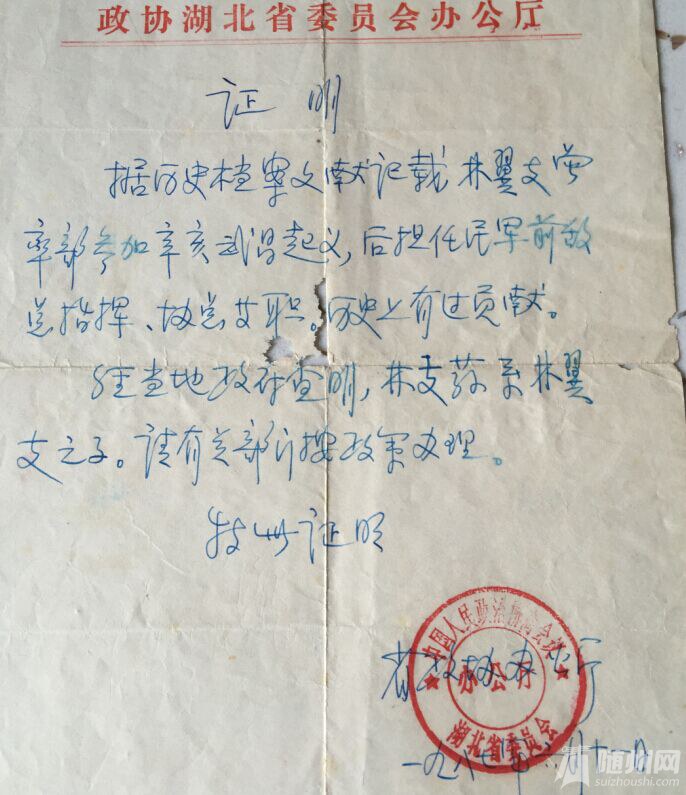 政协湖北省委员会办公厅
证明
据历史档案文献记载林翼支曾
率部参加辛亥武昌起义,后担任民军前敌
总指挥、协总 职。历史上有过贡献。
经当地政府查明,林支 系林翼
支之子。请有关部门按政策办理。
特此证明
中国人民政治协商会议
办公厅
湖北省委员会
省政协办公厅
一九八七年 月十一日
随州网
suizhoushi.com